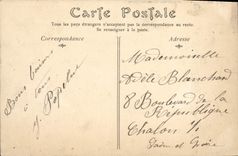 Carte Postale
Tous les pays étrangers n'acceptent pas la correspondance au recto.
Se renseigner à la poste.
Correspondance
Adresse
Bons baisers
à tous
Mademoiselle
Adèle Blanchard
8 Boulevard de la
République
Chalon s/
Saône et Loire